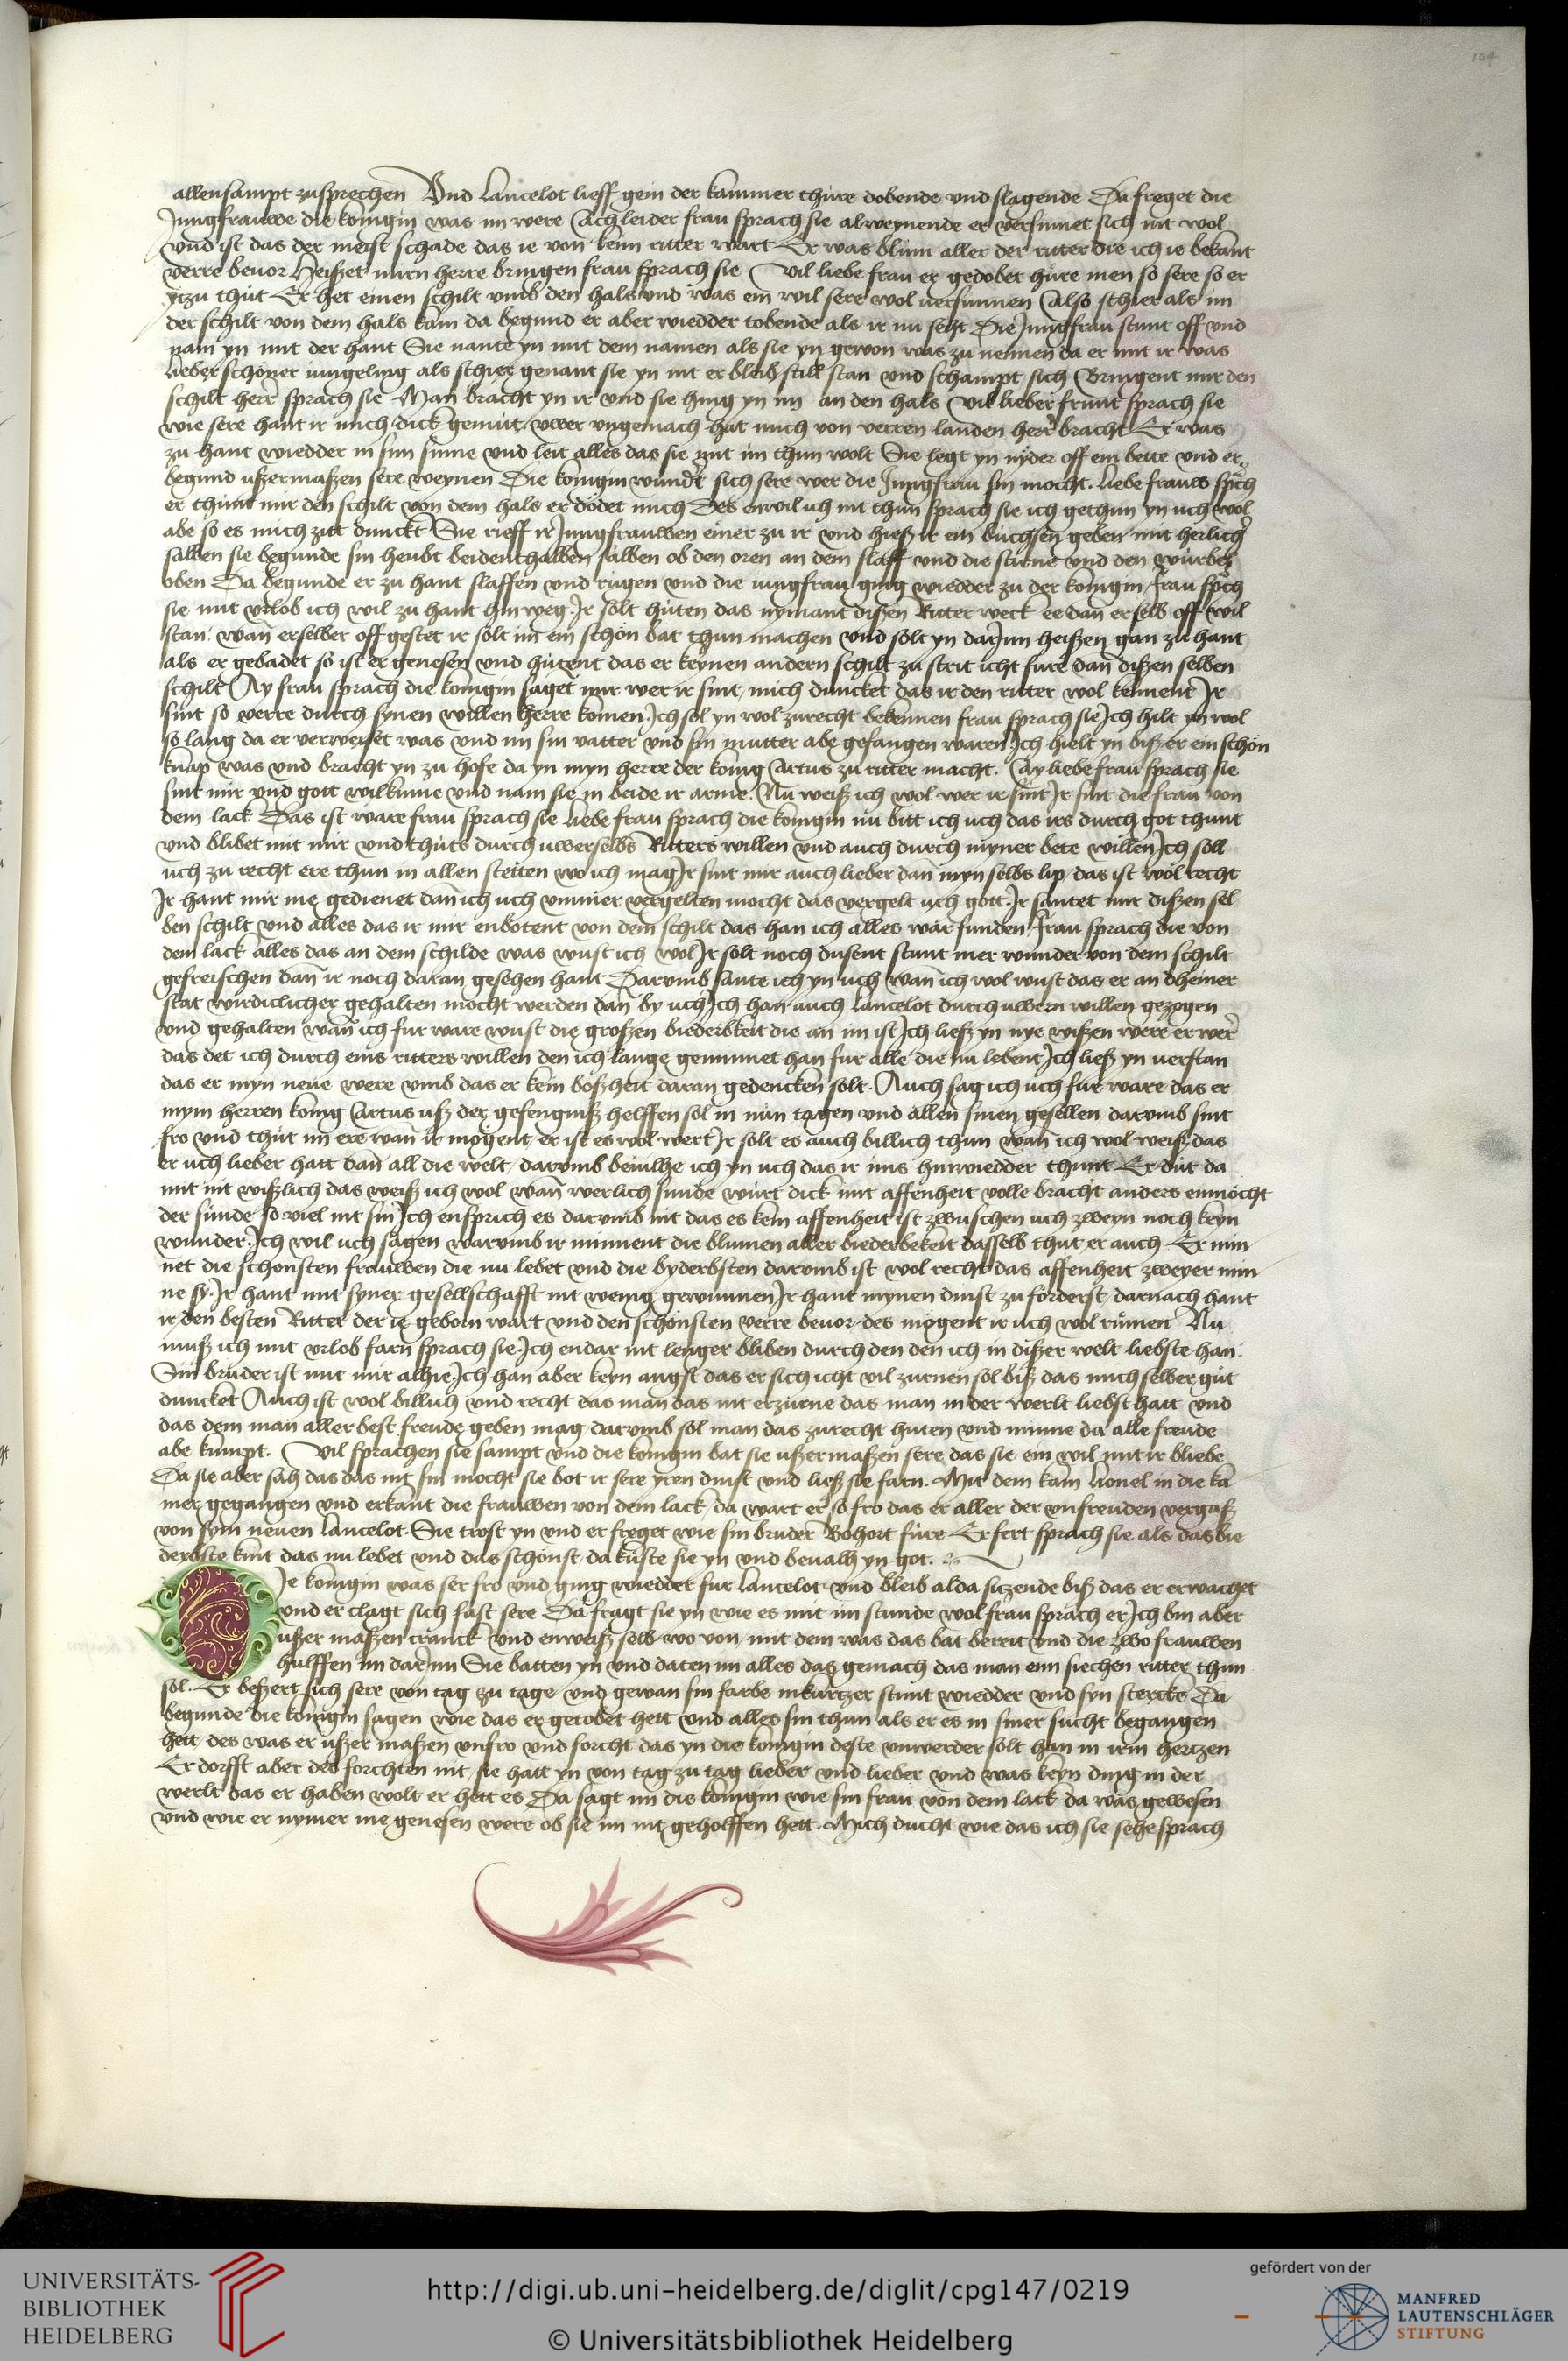 104
allensampt zusprechen Und Lancelot lieff gein der kammer thúre dobende und slagende Da freget die
Jungfrauwe die konigin was im were Ach leider frau sprach sie alweynende er versinnet sich nit wol
und ist das der meist schade das ie von keim ritter wart Er was blum aller der ritter die ich ie bekant
verre bevor Heißet mirn herre bringen frau sprach sie Vil liebe frau er gedobet húre men so sere so er
ytzu thut Er het einen schilt umb den hals und was ein wil sere wol versunnen Also schier als im
der schilt von dem hals kam da begund er aber wiedder tobende als ir nu seht Die Jungfrau stunt off und
nam yn mit der hant Sie nante yn mit dem namen als sie yn gewon was zu nennen da er mit ir was
Lieber schöner jungeling als schier genant sie yn nit er bleib still stan und schampt sich Bringent mir den
schilt herre sprach sie Man bracht yn ir und sie hing yn im an den hals Vil lieber frunt sprach sie
wie sere hant ir mich dick gemüt uwer ungemach hat mich von verren landen herre bracht Er was
zu hant wiedder in sim sinne und leit alles das sie mit im thun wolt Sie legt yn nyder off ein bette und er
begund ußermaßen sere weynen Die konigin wundert sich sere wer die Jungfrau sin mocht. Liebe frauw spch
er thunt mir den schilt von dem hals er dödet mich Des enwil ich nit thun sprach sie ich gethun yn uch wol
abe so es mich zitt dunckt Sie rieff ir Jungfrauwen einer zu ir und hieß ir ein búchsen geben mit herlicher
salben sie begunde sin heubt beidenthalben salben ob den oren an dem slaff und die stirne und den wúrbel
oben Da begunde er zu hant slaffen und rugen und die jungfrau ging wiedder zu der konigin frau spch
sie mit urlob ich wil zu hant hinweg. Ir solt húten das nymant dißen Ritter weck ee dan er selb off wil
stan. wann er selber off gestet ir solt im ein schön bat thun machen und solt yn darinn heißen gan zu hant
als er gebadet so ist er genesen und hútent das er keynen andern schilt zu strit icht fure dan dißen selben
schilt Ay frau sprach die konigin saget mir wer ir sint, mich duncket das ir den ritter wol kennent Ir
sint so verre durch synen willen herre komen. Ich sol yn wol zurecht bekennen frau sprach sie Ich hilt yn wol
so lang da er verweiset was und im sin vatter und sin mutter abe gefangen waren. Ich hielt yn biß er ein schön
knap was und bracht yn zu hofe da yn myn herre der konig Artus zu ritter macht. Ay liebe frau sprach sie
sint mir und gott wilkume und nam sie in beide ir arme. Nu weiß ich wol wer ir sint Ir sint die frau von
dem lack Das ist ware frau sprach sie Liebe frau sprach die konigin nu bitt ich uch das irs durch got thunt
und blibet mit mir und thuts durch uwerselbs Ritters willen und auch durch myner bete willen Ich soll
uch zu recht ere thun in allen stetten wo ich mag Ir sint mir auch lieber dan myn selbs lip, das ist wol recht
Ir hant mir me gedienet dan ich uch ummer vergelten mocht das vergelt uch gott. Ir santet mir dißen sel
ben schilt und alles das ir mir enbotent von dem schilt das han ich alles war funden Frau sprach die von
dem lack alles das an dem schilde was wust ich wol Ir solt noch dusent stunt mer wunder von dem schilt
gefreischen dan ir noch daran gesehen hant Darumb sante ich yn uch wann ich wol wust das er an dheiner
stat wirdiclicher gehalten mocht werden dan by uch Ich han auch Lancelot durch uwern willen gezogen
und gehalten wann ich fur ware wust die großen biederbkeit die an im ist Ich ließ yn nye wißen were er wer
das det ich durch eins ritters willen den ich lange geminnet han fur alle die nu lebent Ich ließ yn verstan
das er myn neve were umb das er kein bößheit daran gedencken solt. Auch sag ich uch fur ware das er
mym herren konig Artus uß der gefengniß helffen sol in nun tagen und allen sinen gesellen darumb sint
fro und thut im ere wan ir mogent er ist es wol wert Ir solt es auch billich thun wann ich wol weiß das
er uch lieber hatt dan all die welt, darumb bevilhe ich yn uch das ir ims hinwiedder thunt Er dut da
mit nit wißlich das weiß ich wol wann werlich sunde wurt dick mit affenheit volle bracht anders enmöcht
der sunde so viel nit sin Ich ensprich es darumb nit das es kein affenheit ist zwuschen uch zweyn noch keyn
wunder. Ich wil uch sagen warumb ir minnent die blumen aller biederbekeit dasselb thut er auch Er min
net die schonsten frauwen die nu lebet und die byderbsten darumb ist wol recht das affenheit zweyer min
ne sy. Ir hant mit syner gesellschafft nit wenig gewunnen Ir hant mynen dinst zu forderst, darnach hant
ir den besten Ritter der ie geborn wart und den schonsten verre bevor, des mogent ir uch wol rúmen Nu
muß ich mit urlob farn sprach sie. Ich endar nit lenger bliben durch den den ich in dißer welt liebste han.
Sin bruder ist mit mir alhie. Ich han aber keyn angst das er sich icht vil zurnen sol biß das mich selber gut
duncket Auch ist wol billich und recht das man das nit erzurne das man in der werlt liebst hatt und
das dem man aller best freude geben mag darumb sol man das zurecht huten und minne da alle freude
abe kumpt. Vil sprachen sie sampt und die konigin bat sie ußermaßen sere das sie ein wil mit ir bliebe
Da sie aber sah das das nit sin mocht sie bot ir sere yren dinst und ließ sie farn. Mit dem kam Lionel in die ka
mer gegangen und erkant die frauwen von dem lack, da wart er so fro das er aller der unfreuden vergaß
von sym neven Lancelot. Sie trost yn und er freget wie sin bruder Bohort fúre Er fert sprach sie als das bie
derbste kint das nu lebet und das schönst da kúste sie yn und bevalh yn got.
Die konigin was ser fro und ging wiedder fur Lancelot und bleib alda sitzende biß das er erwachet
und er clagt sich fast sere Da fragt sie yn wie es mit im stunde wol frau sprach er Ich bin aber
ußer maßen cranck und enweiß selb wo von, mit dem was das bat bereit und die zwo frauwen
hulffen im darinn Sie batten yn und daten im alles das gemach das man eim siechen ritter thun
sol. Er beßert sich sere von tag zu tage und gewan sin farbe in kurtzer stunt wiedder und syn stercke Da
begunde die konigin sagen wie das er getobet hett und alles sin thun als er es in siner sucht begangen
hett des was er ußer maßen unfro und forcht das yn die konigin deste unwerder solt han in irm hertzen
Er dorfft aber des forchten nit sie hatt yn von tag zu tag lieber und lieber und was keyn ding in der
werlt das er haben wolt er hett es Da sagt im die konigin wie sin frau von dem lack da was gewesen
und wie er nymer me genesen were ob sie im nit geholffen hett. Mich ducht wie das ich sie sehe sprach
UNIVERSITÄTS-
BIBLIOTHEK
HEIDELBERG
http://digi.ub.uni-heidelberg.de/diglit/cpg147/0219
© Universitätsbibliothek Heidelberg
gefördert von der
MANFRED
LAUTENSCHLÄGER
STIFTUNG